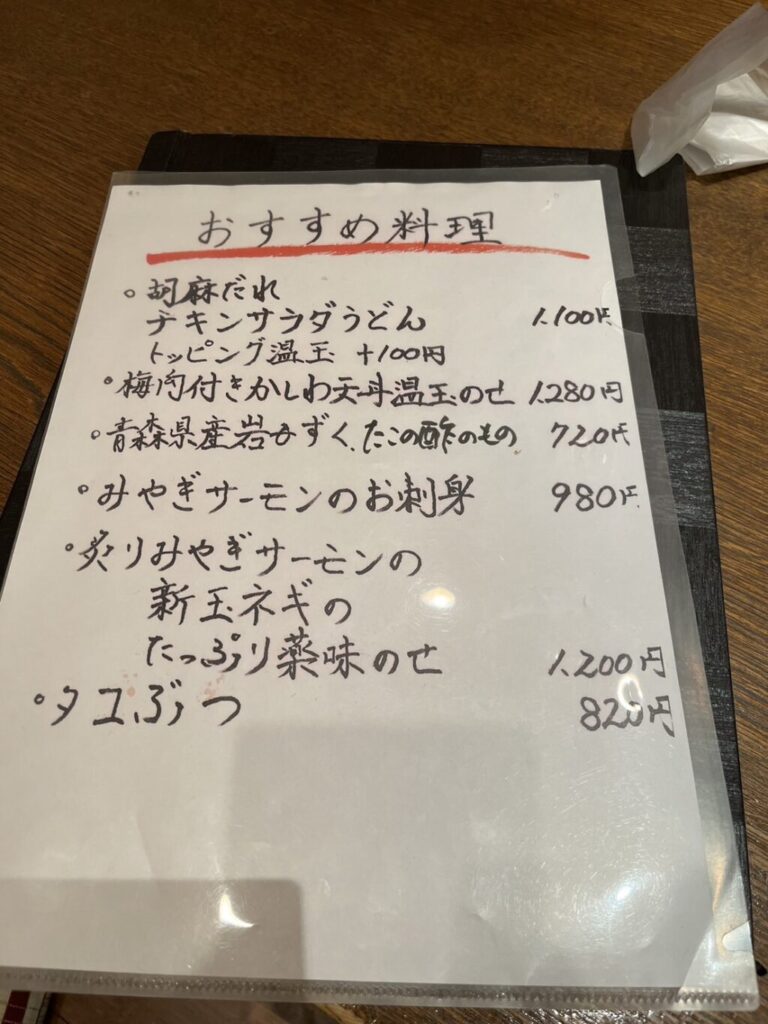 おすすめ料理
。胡麻だれ
チキンサラダうどん 1.100円
トッピング温玉 +100円
。梅肉付きかしわ天丼温玉のせ 1.280円
。青森県産岩もずく、たこの酢のもの 720円
。みやぎサーモンのお刺身 980円
。炙りみやぎサーモンの
新玉ネギの
たっぷり薬味のせ 1.200円
。タコぶつ 820円